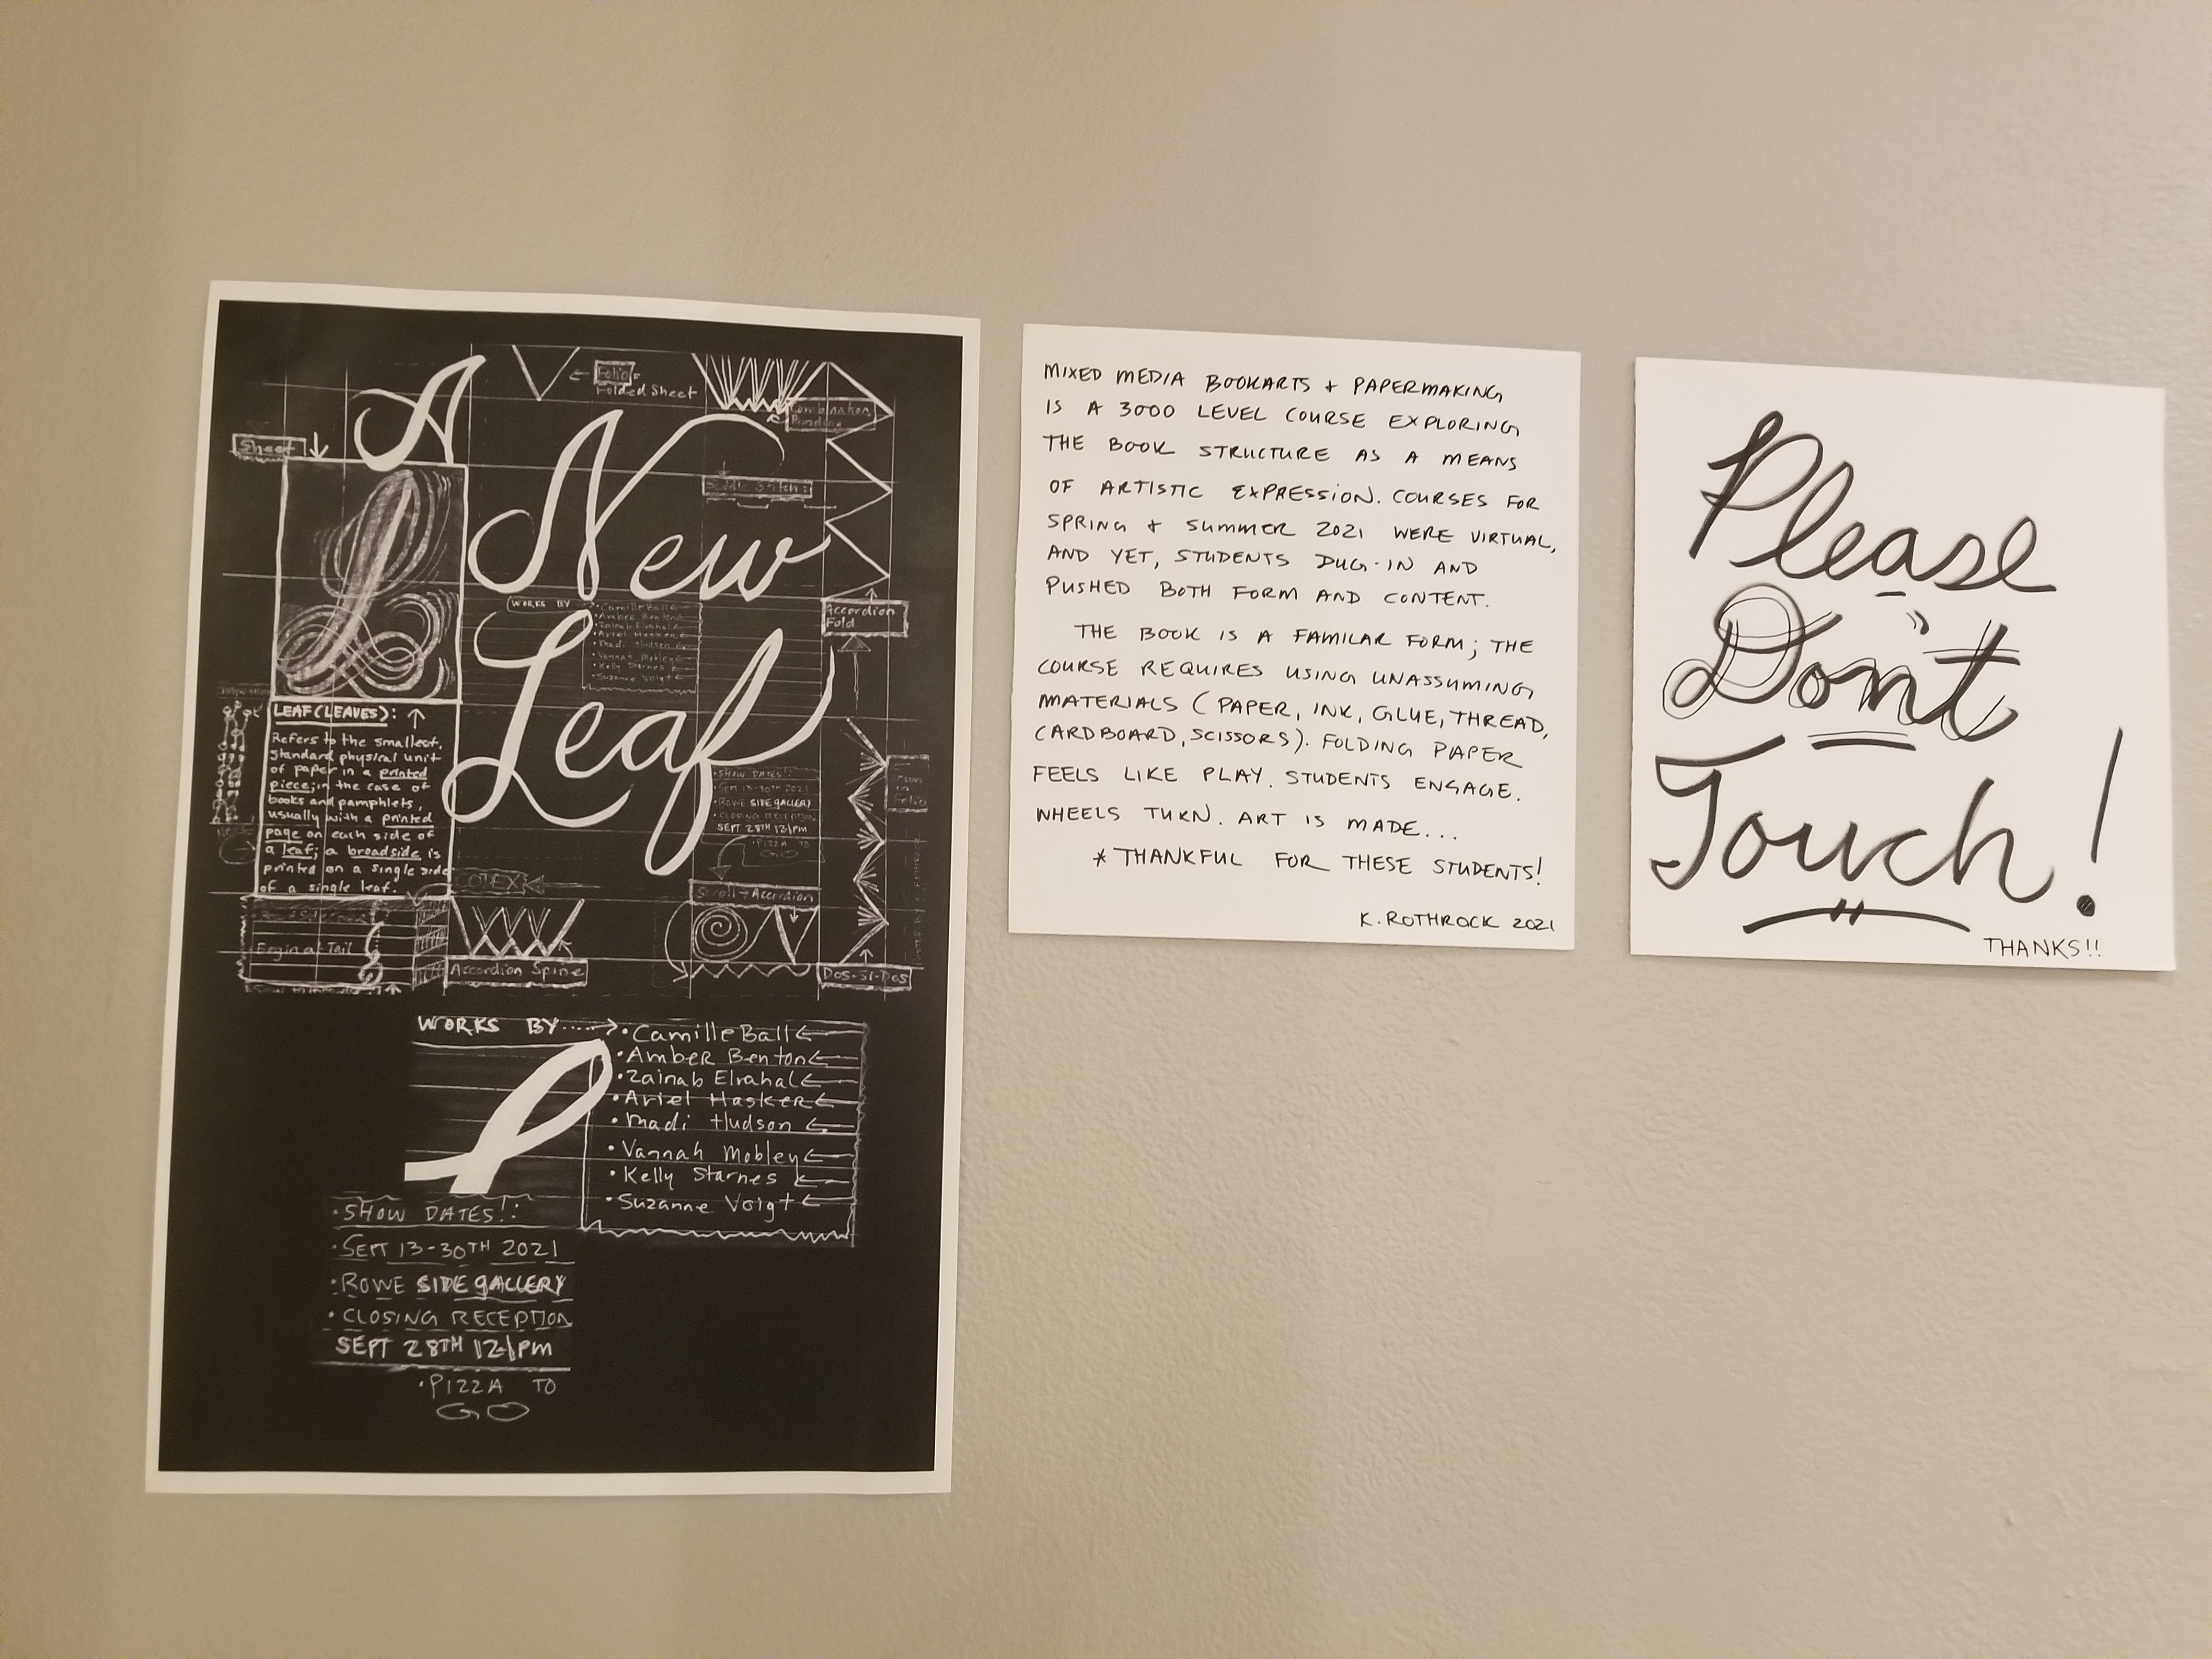 A
New
Leaf
← Folio =
Folded Sheet
Combination
Binding
Sheet ↓
Saddle Stitch:
WORKS BY
• Camille Ball
• Amber Benton
• Zainab Elrahal
• Ariel Hasker
• Madi Hudson
• Vannah Mobley
• Kelly Starnes
• Suzanne Voigt
Accordion
Fold
LEAF (LEAVES): ↑
Refers to the smallest,
standard physical unit
of paper in a printed
piece; in the case of
books and pamphlets,
usually with a printed
page on each side of
a leaf; a broadside is
printed on a single side
of a single leaf.
• SHOW DATES!:
• SEPT 13-30TH 2021
• ROWE SIDE GALLERY
• CLOSING RECEPTION
SEPT 28TH 12-1PM
• PIZZA TO
GO
CODEX
Scroll → Accordion
Accordion Spine
Dos-Si-Dos
WORKS BY ·····>
• Camille Ball ←
• Amber Benton ←
• Zainab Elrahal ←
• Ariel Hasker ←
• Madi Hudson ←
• Vannah Mobley ←
• Kelly Starnes ←
• Suzanne Voigt ←
• SHOW DATES!:
• SEPT 13-30TH 2021
• ROWE SIDE GALLERY
• CLOSING RECEPTION
SEPT 28TH 12-1PM
• PIZZA TO
GO
MIXED MEDIA BOOKARTS + PAPERMAKING
IS A 3000 LEVEL COURSE EXPLORING
THE BOOK STRUCTURE AS A MEANS
OF ARTISTIC EXPRESSION. COURSES FOR
SPRING + SUMMER 2021 WERE VIRTUAL,
AND YET, STUDENTS DUG-IN AND
PUSHED BOTH FORM AND CONTENT.
THE BOOK IS A FAMILAR FORM; THE
COURSE REQUIRES USING UNASSUMING
MATERIALS (PAPER, INK, GLUE, THREAD,
CARDBOARD, SCISSORS). FOLDING PAPER
FEELS LIKE PLAY. STUDENTS ENGAGE.
WHEELS TURN. ART IS MADE...
* THANKFUL FOR THESE STUDENTS!
K. ROTHROCK 2021
Please
Don't
Touch!
THANKS!!